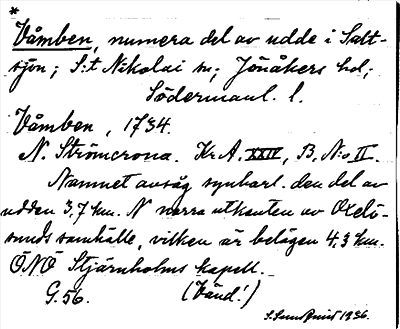 *
Våmben, numera del av udde i Salt-
sjön; S:t Nikolai sn; Jönåkers hd;
Södermanl. l.
Våmben, 1734.
N. Strömcrona. Kr A, XXIV, B, N:o II.
Namnet avsåg synbarl. den del av
udden 3,7 km. N norra utkanten av Oxelö-
sunds samhälle, vilken är belägen 4,3 km.
ÖNÖ Stjärnholms kapell.
G. 56. (Vänd!)
1936.